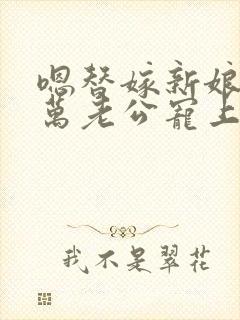 嗯替嫁新娘
萬老公寵上
我不是翠花